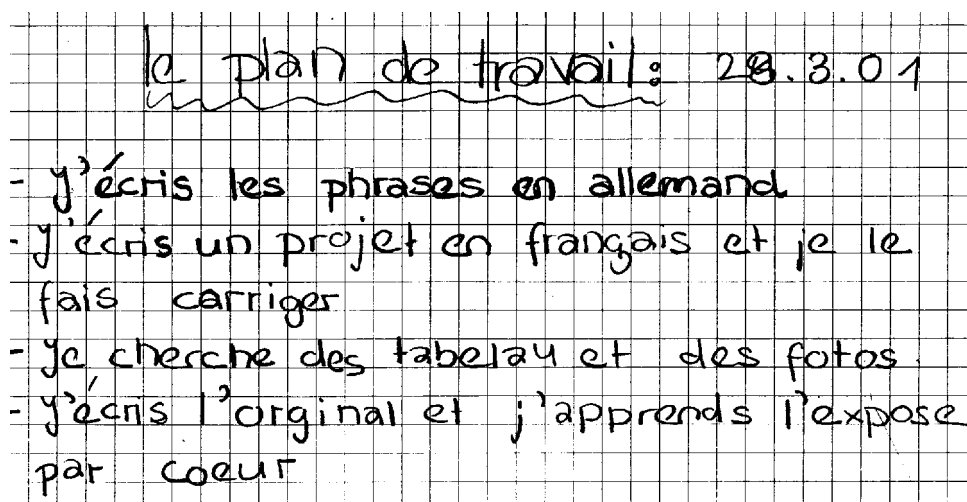 le plan de travail: 28.3.01
- J'écris les phrases en allemand
- J'écris un projet en français et je le
fais carriger
- Je cherche des tabelau et des fotos.
- J'écris l'orginal et j'apprends l'expose
par coeur